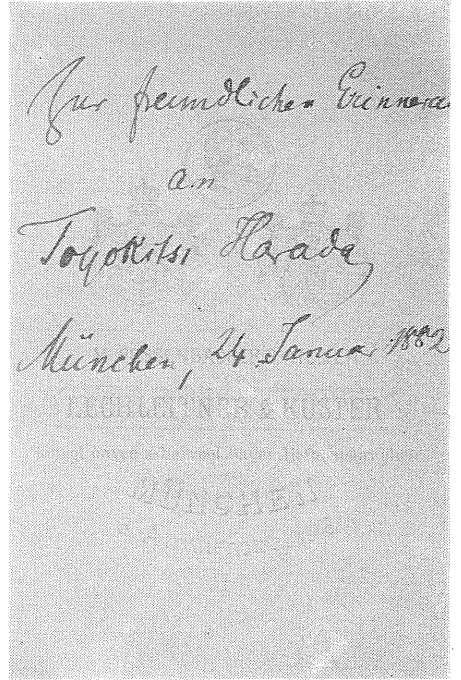 Zur freundlichen Erinnerung
an
Toyokitsi Harada
München, 24. Januar 1882
LECHLEITNER & KÜSTER
MÜNCHEN